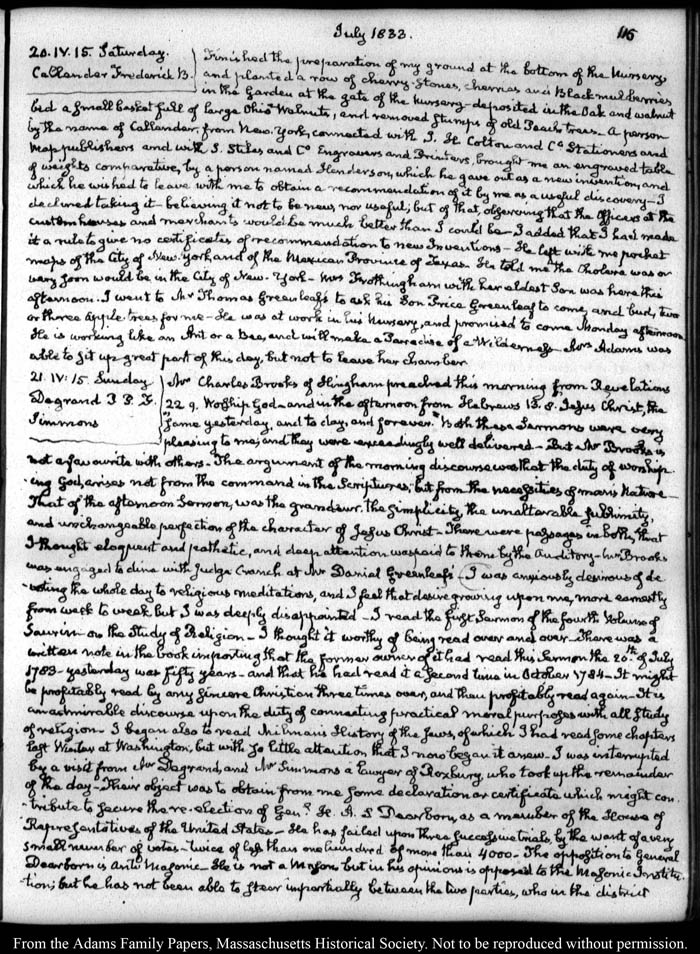 July 1833.
115
20. IV. 15. Saturday.
Callander Frederick B.
Finished the preparation of my ground at the bottom of the Nursery,
and planted a row of cherry-stones, cherries and Black mulberries
in the Garden at the gate of the Nursery - deposited in the Oak and walnut
bed a small basket full of large Ohio Walnuts, and removed stumps of old Peach trees - A person
by the name of Callander, from New-York, connected with J. H. Colton and Co. Stationers and
Map publishers and with S. Stiles and Co Engravers and Printers, brought me an engraved table
of weights comparative, by a person named Henderson, which he gave out as a new invention, and
which he wished to leave with me to obtain a recommendation of it by me as a useful discovery - I
declined taking it - believing it not to be new, nor useful; but of that, observing that the Officers at the
custom houses and merchants would be much better than I could be - I added that I had made
it a rule to give no certificates of recommendation to new Inventions - He left with me pocket
maps of the City of New-York, and of the Mexican Province of Texas. He told me the Cholera was or
very soon would be in the City of New-York - Mrs Frothingham with her eldest Son was here this
afternoon. I went to Mr Thomas Greenleaf's to ask his Son Price Greenleaf to come, and bud, two
or three apple trees for me - He was at work in his Nursery, and promised to come Monday afternoon
He is working like an Ant or a Bee, and will make a Paradise of a Wilderness - Mrs Adams was
able to sit up great part of this day, but not to leave her chamber.
21. IV: 15. Sunday
Degrand P. P. F.
Simmons
Mr Charles Brooks of Hingham preached this morning from Revelations
22. 9. Worship God - and in the afternoon from Hebrews 13. 8. Jesus Christ, the
same yesterday, and to day, and forever." Both these Sermons were very
pleasing to me; and they were exceedingly well delivered - But Mr Brooks is
not a favourite with others - The argument of the morning discourse was that the duty of worship-
-ing God, arises not from the command in the Scriptures, but from the necessities of man's Nature -
That of the afternoon Sermon, was the grandeur, the simplicity, the unalterable sublimity,
and unchangeable perfection of the character of Jesus Christ - There were passages in both, that
I thought eloquent and pathetic, and deep attention was paid to them by the Auditory - Mr Brooks
was engaged to dine with Judge Cranch at Mr Daniel Greenleaf's - I was anxiously desirous of de
-voting the whole day to religious meditations, and I feel that desire growing upon me, more earnestly
from week to week but I was deeply disappointed - I read the first Sermon of the fourth Volume of
Saurin - on the Study of Religion - I thought it worthy of being read over and over - There was a
written note in the book importing that the former owner of it had read this Sermon the 20th of July
1783 - yesterday was fifty years - and that he had read it a second time in October 1784 - It might
be profitably read by any sincere Christian three times over, and then profitably read again - It is
an admirable discourse upon the duty of connecting practical moral purposes with all study
of religion - I began also to read Milman's History of the Jews, of which I had read some chapters
last Winter at Washington, but with so little attention that I now began it anew - I was interrupted
by a visit from Mr Degrand, and Mr Simmons a Lawyer of Roxbury, who took up the remainder
of the day - Their object was to obtain from me some declaration or certificate which might con
-tribute to secure the re-election of Genl. H. A. S Dearborn, as a member of the House of
Representatives of the United States - He has failed upon three successive trials, by the want of a very
small number of votes - twice of less than one hundred of more than 4000 - The opposition to General
Dearborn is Anti Masonic - He is not a Mason, but in his opinions is opposed to the Masonic Institu
-tion; but he has not been able to steer impartially between the two parties, who in the district
From the Adams Family Papers, Massachusetts Historical Society. Not to be reproduced without permission.